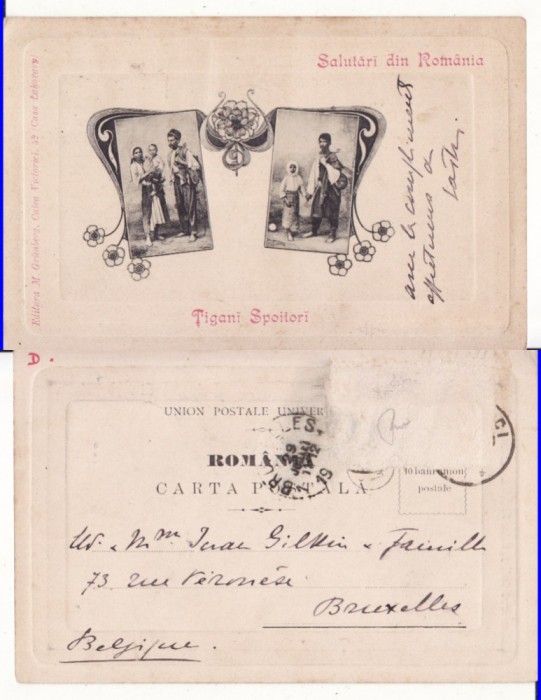 Salutări din România
Editura M. Grünberg, Calea Victoriei, 52
avec les compliments
affectueux de
Țigani Spoitori
D.
UNION POSTALE UNIVER
ROMÂNIA
CARTA POSTALĂ
10 bani
postale
BRUXELLES
Md. & Mme Iwan Gilkin & Famille
73, rue Véronèse
Bruxelles
Belgique.